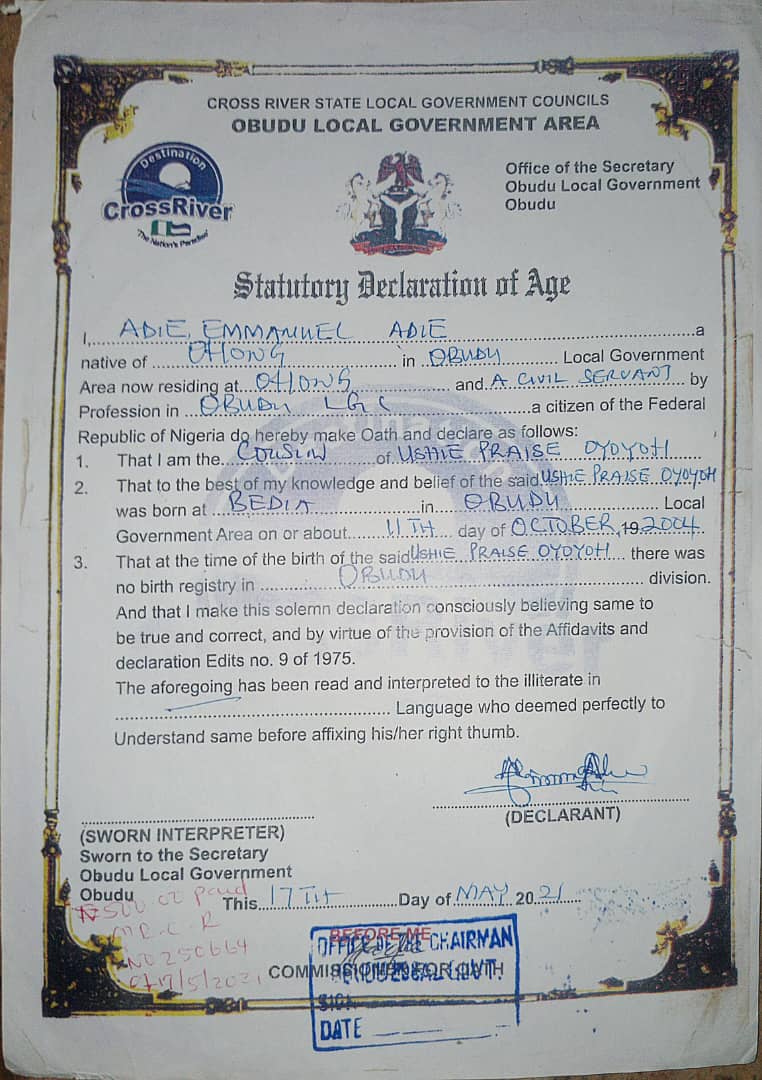 CROSS RIVER STATE LOCAL GOVERNMENT COUNCILS
OBUDU LOCAL GOVERNMENT AREA
Destination
CrossRiver
"The Nation's Paradise"
Office of the Secretary
Obudu Local Government
Obudu
Statutory Declaration of Age
I, ADIE, EMMANUEL ADIE a
native of OHONG in OBUDU Local Government
Area now residing at OHONG and A CIVIL SERVANT by
Profession in OBUDU LGC a citizen of the Federal
Republic of Nigeria do hereby make Oath and declare as follows:
1. That I am the COUSIN of USHIE PRAISE OYOYOH
2. That to the best of my knowledge and belief of the said USHIE PRAISE OYOYOH
was born at BEDIA in OBUDU Local
Government Area on or about 11TH day of OCTOBER, 19 2004
3. That at the time of the birth of the said USHIE PRAISE OYOYOH there was
no birth registry in OBUDU division.
And that I make this solemn declaration consciously believing same to
be true and correct, and by virtue of the provision of the Affidavits and
declaration Edits no. 9 of 1975.
The aforegoing has been read and interpreted to the illiterate in
Language who deemed perfectly to
Understand same before affixing his/her right thumb.
(DECLARANT)
(SWORN INTERPRETER)
Sworn to the Secretary
Obudu Local Government
Obudu
This 17TH Day of MAY 2021
₦500 oz paid
MR. C. R
NO 250664
17/5/2021
BEFORE ME
OFFICE OF THE CHAIRMAN
COMMISSIONER FOR OATH
OBUDU LOCAL GOVT.
SIGN
DATE